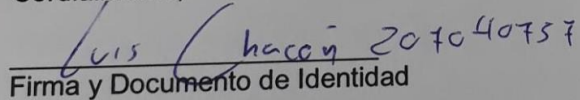 Luis Chacón 207040737
Firma y Documento de Identidad